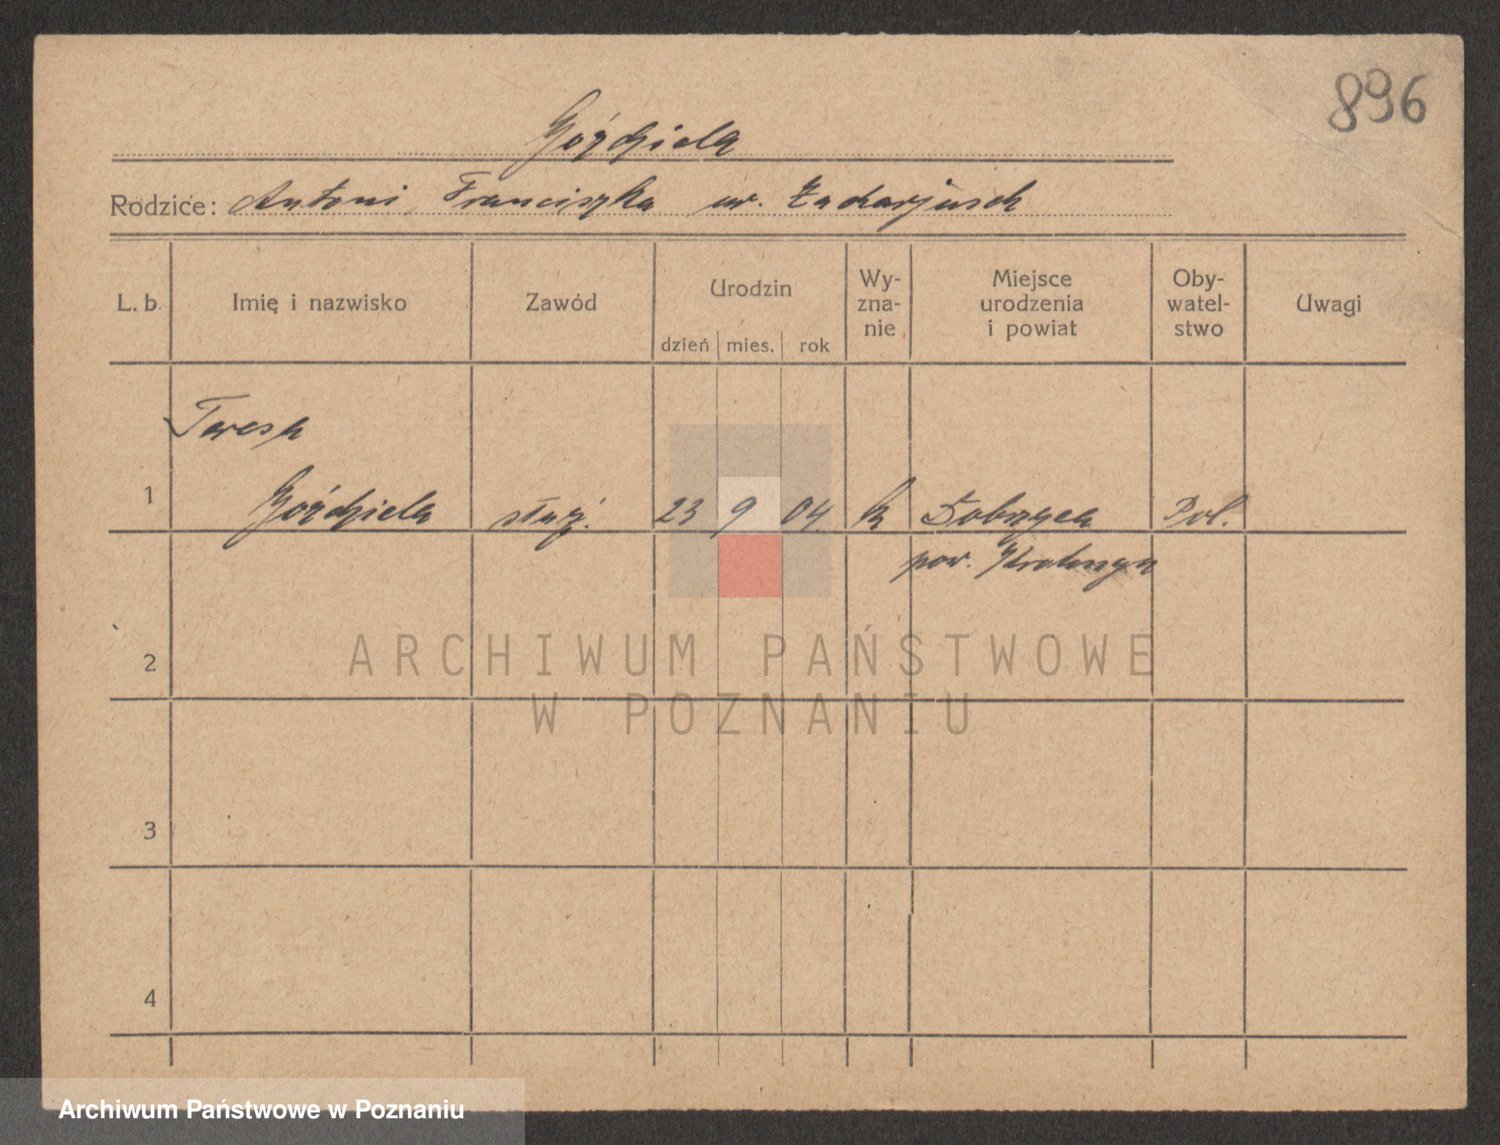 896
Góździela
Rodzice: Antoni, Franciszka ur. Zacharjasch
L. b. Imię i nazwisko Zawód Urodzin dzień mies. rok Wy-zna-nie Miejsce urodzenia i powiat Oby-watel-stwo Uwagi
Teresa
1 Góździela służ. 23 9 04 k Dobrzyca Pol.
pow.
2
ARCHIWUM PAŃSTWOWE
W POZNANIU
3
4
Archiwum Państwowe w Poznaniu